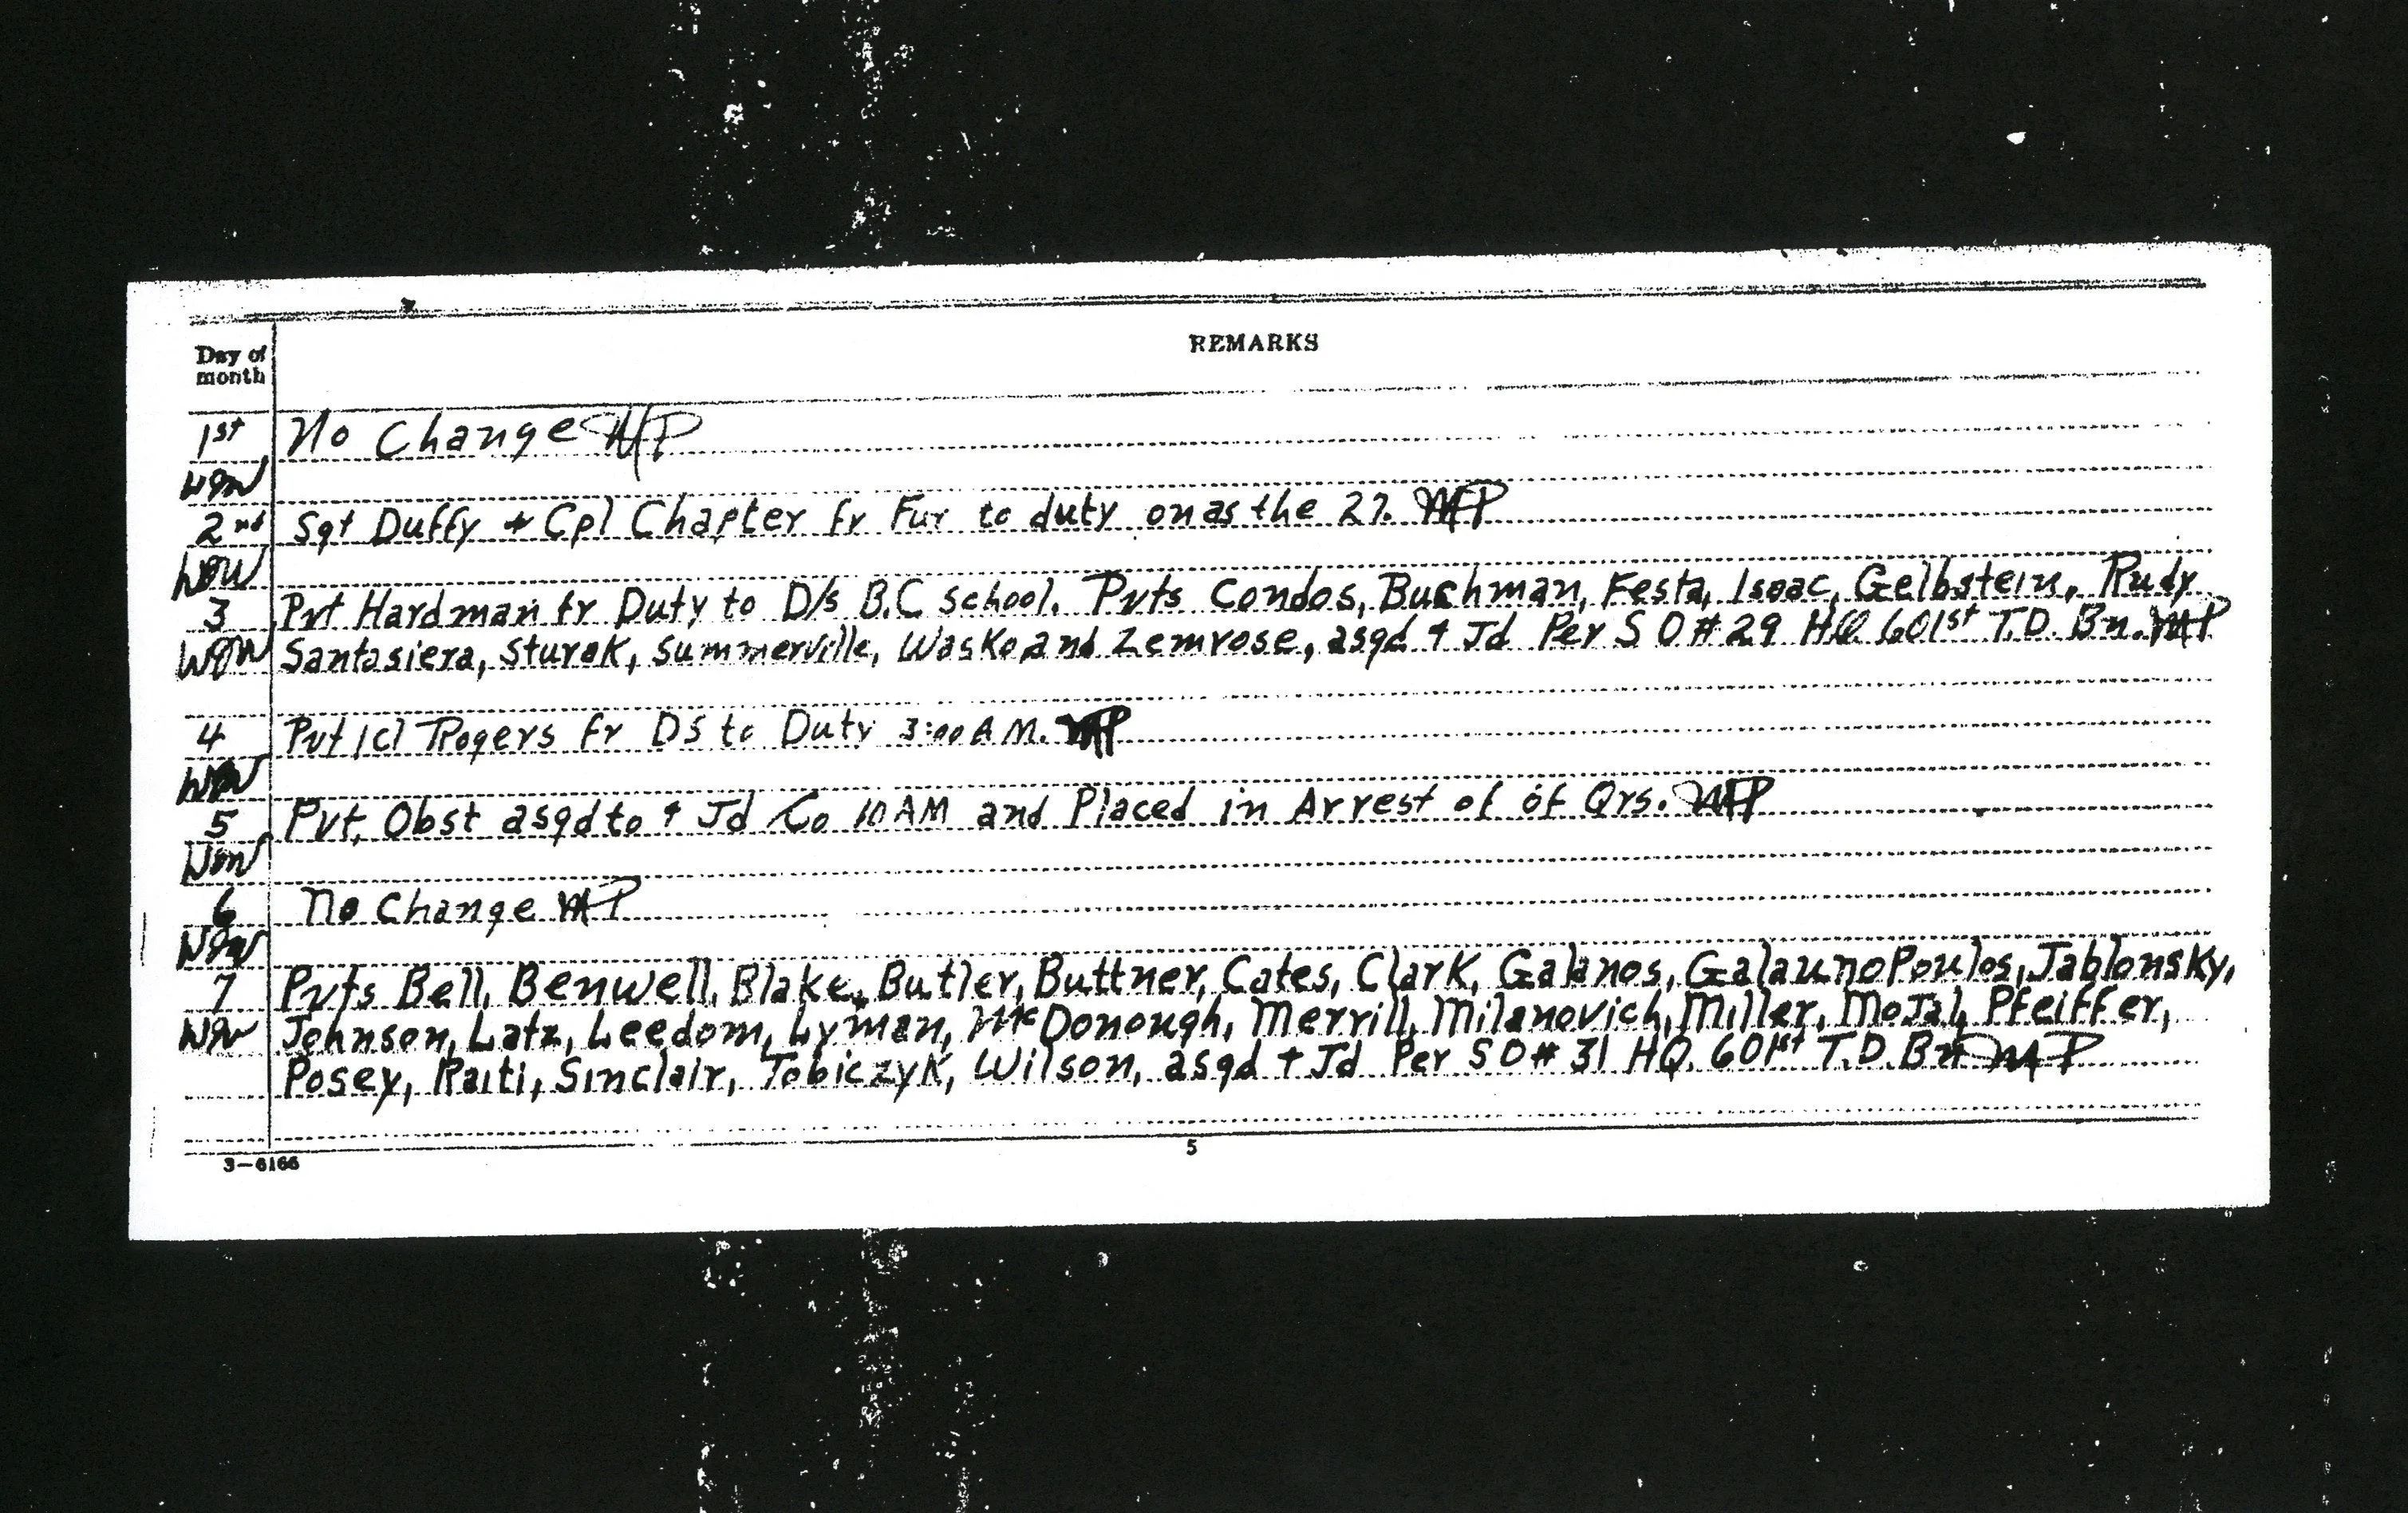 Day of month
REMARKS
1st No Change MP
WBW
2nd Sgt Duffy + Cpl Chapter fr Fur to duty on as the 27. MP
WBW
3 Pvt Hardman fr Duty to D/s B.C school. Pvts Condos, Buchman, Festa, Isaac, Gelbstein, Rudy
WBW Santasiera, Sturek, Summerville, Wasko and Zemrose, asgd + Jd Per S O # 29 HQ 601st T.D. Bn. MP
4 Pvt 1cl Rogers fr DS to Duty 3:00 A M. MP
WBW
5 Pvt. Obst asgd to + Jd Co 10 AM and Placed in Arrest of of Qrs. MP
WBW
6 No Change MP
WBW
7 Pvts Bell, Benwell, Blake, Butler, Buttner, Cates, Clark, Galanos, GalaunoPoulos, Jablonsky,
WBW Johnson, Latz, Leedom, Lyman, McDonough, Merrill, Milanovich, Miller, MoJal, Pfeiffer,
Posey, Raiti, Sinclair, Tobiczyk, Wilson, asgd + Jd Per S O # 31 HQ. 601st T.D. Bn MP
3—6166
5